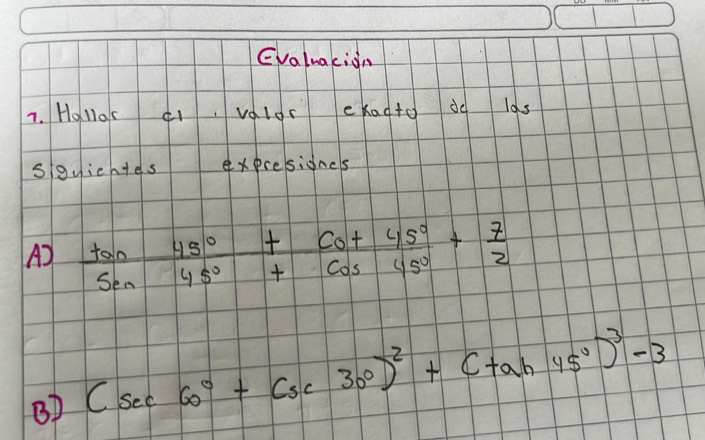 Evaluación
1. Hallar el valor exacto de las
siguientes expresiones
A) (tan 45° + cot 45°) / (sen 45° + cos 45°) + 7/2
B) (sec 60° + csc 30°)² + (tan 45°)³ - 3